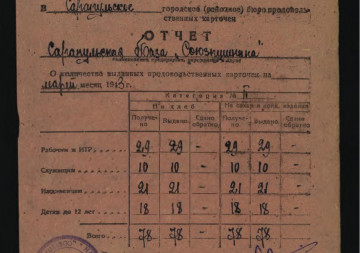 в Сарапульское городское (районное) бюро продоволь-
ственных карточек
ОТЧЕТ
Сарапульская база „Союзпушнина“
О количестве выданных продовольственных карточек на
март месяц 194 г.
Категория № II
На хлеб На сахар и конд. изделия
Получе-но Выдано Сдано обратно Получе-но Выдано Сдано обратно
Рабочим и ИТР 29 29 - 29 29 -
Служащим 10 10 - 10 10 -
Иждивенцам 21 21 - 21 21 -
Детям до 12 лет 18 18 - 18 18 -
Всего 78 78 - 78 78 -